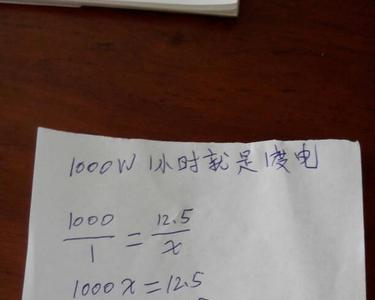 1000W 1小时就是1度电
1000/1 = 12.5/x
1000x=12.5